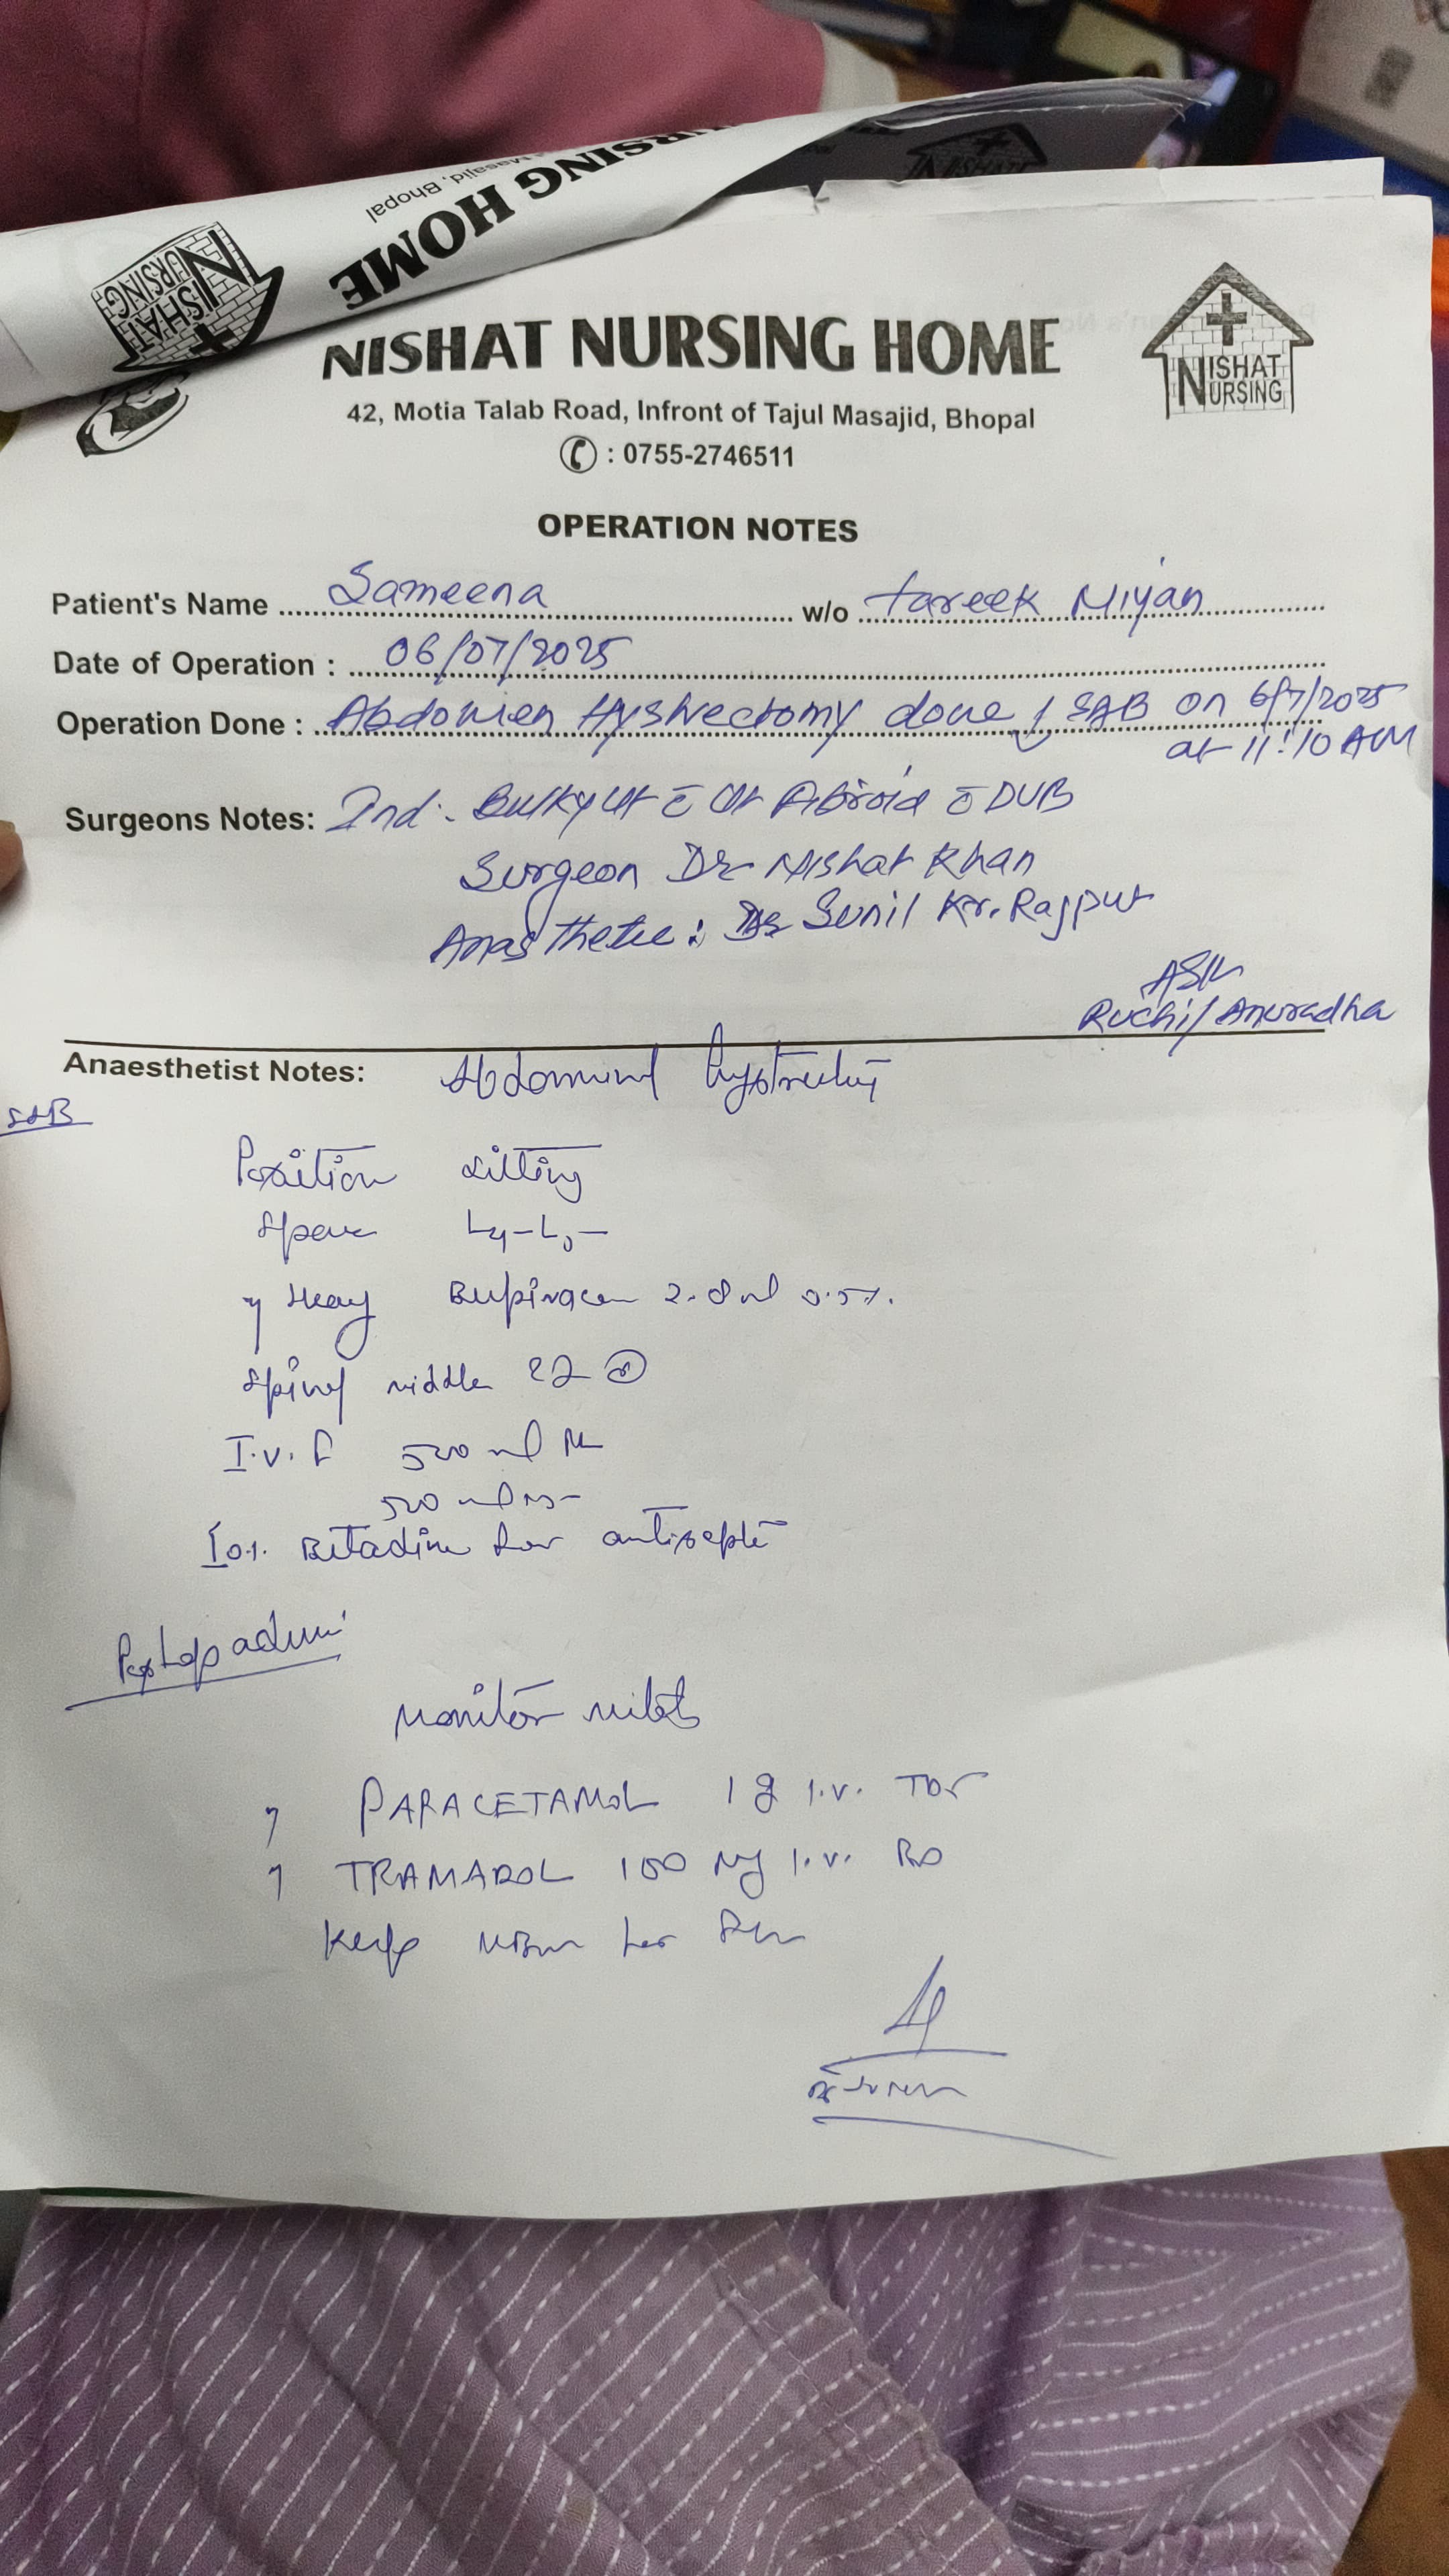 NURSING HOME
Masajid, Bhopal
NISHAT
NURSING
NISHAT NURSING HOME
NISHAT
NURSING
42, Motia Talab Road, Infront of Tajul Masajid, Bhopal
: 0755-2746511
OPERATION NOTES
Patient's Name Sameena w/o tareek Miyan
Date of Operation : 06/07/2025
Operation Done : Abdomien Hystrectomy done SAB on 6/7/2025
at 11:10 AM
Surgeons Notes: Ind:- Bulky Ut c̄ Ut Fibroid c̄ DUB
Surgeon Dr Nishat Khan
Anasthetic : Dr Sunil Kr. Rajput
Ruchi/Anuradha
Anaesthetist Notes: Abdominal hystrectomy
SAB
Position sitting
Space L4-L5
Heavy Bupivacain 0.5%.
Spinal niddle 22 G
I.v. f 500 ml
500 ml NS
10% Betadine for antiseptic
Postop advice
Monitor vitals
PARACETAMOL 1 g I.v. TDS
TRAMADOL 100 mg I.v. BD
Keep NBM for